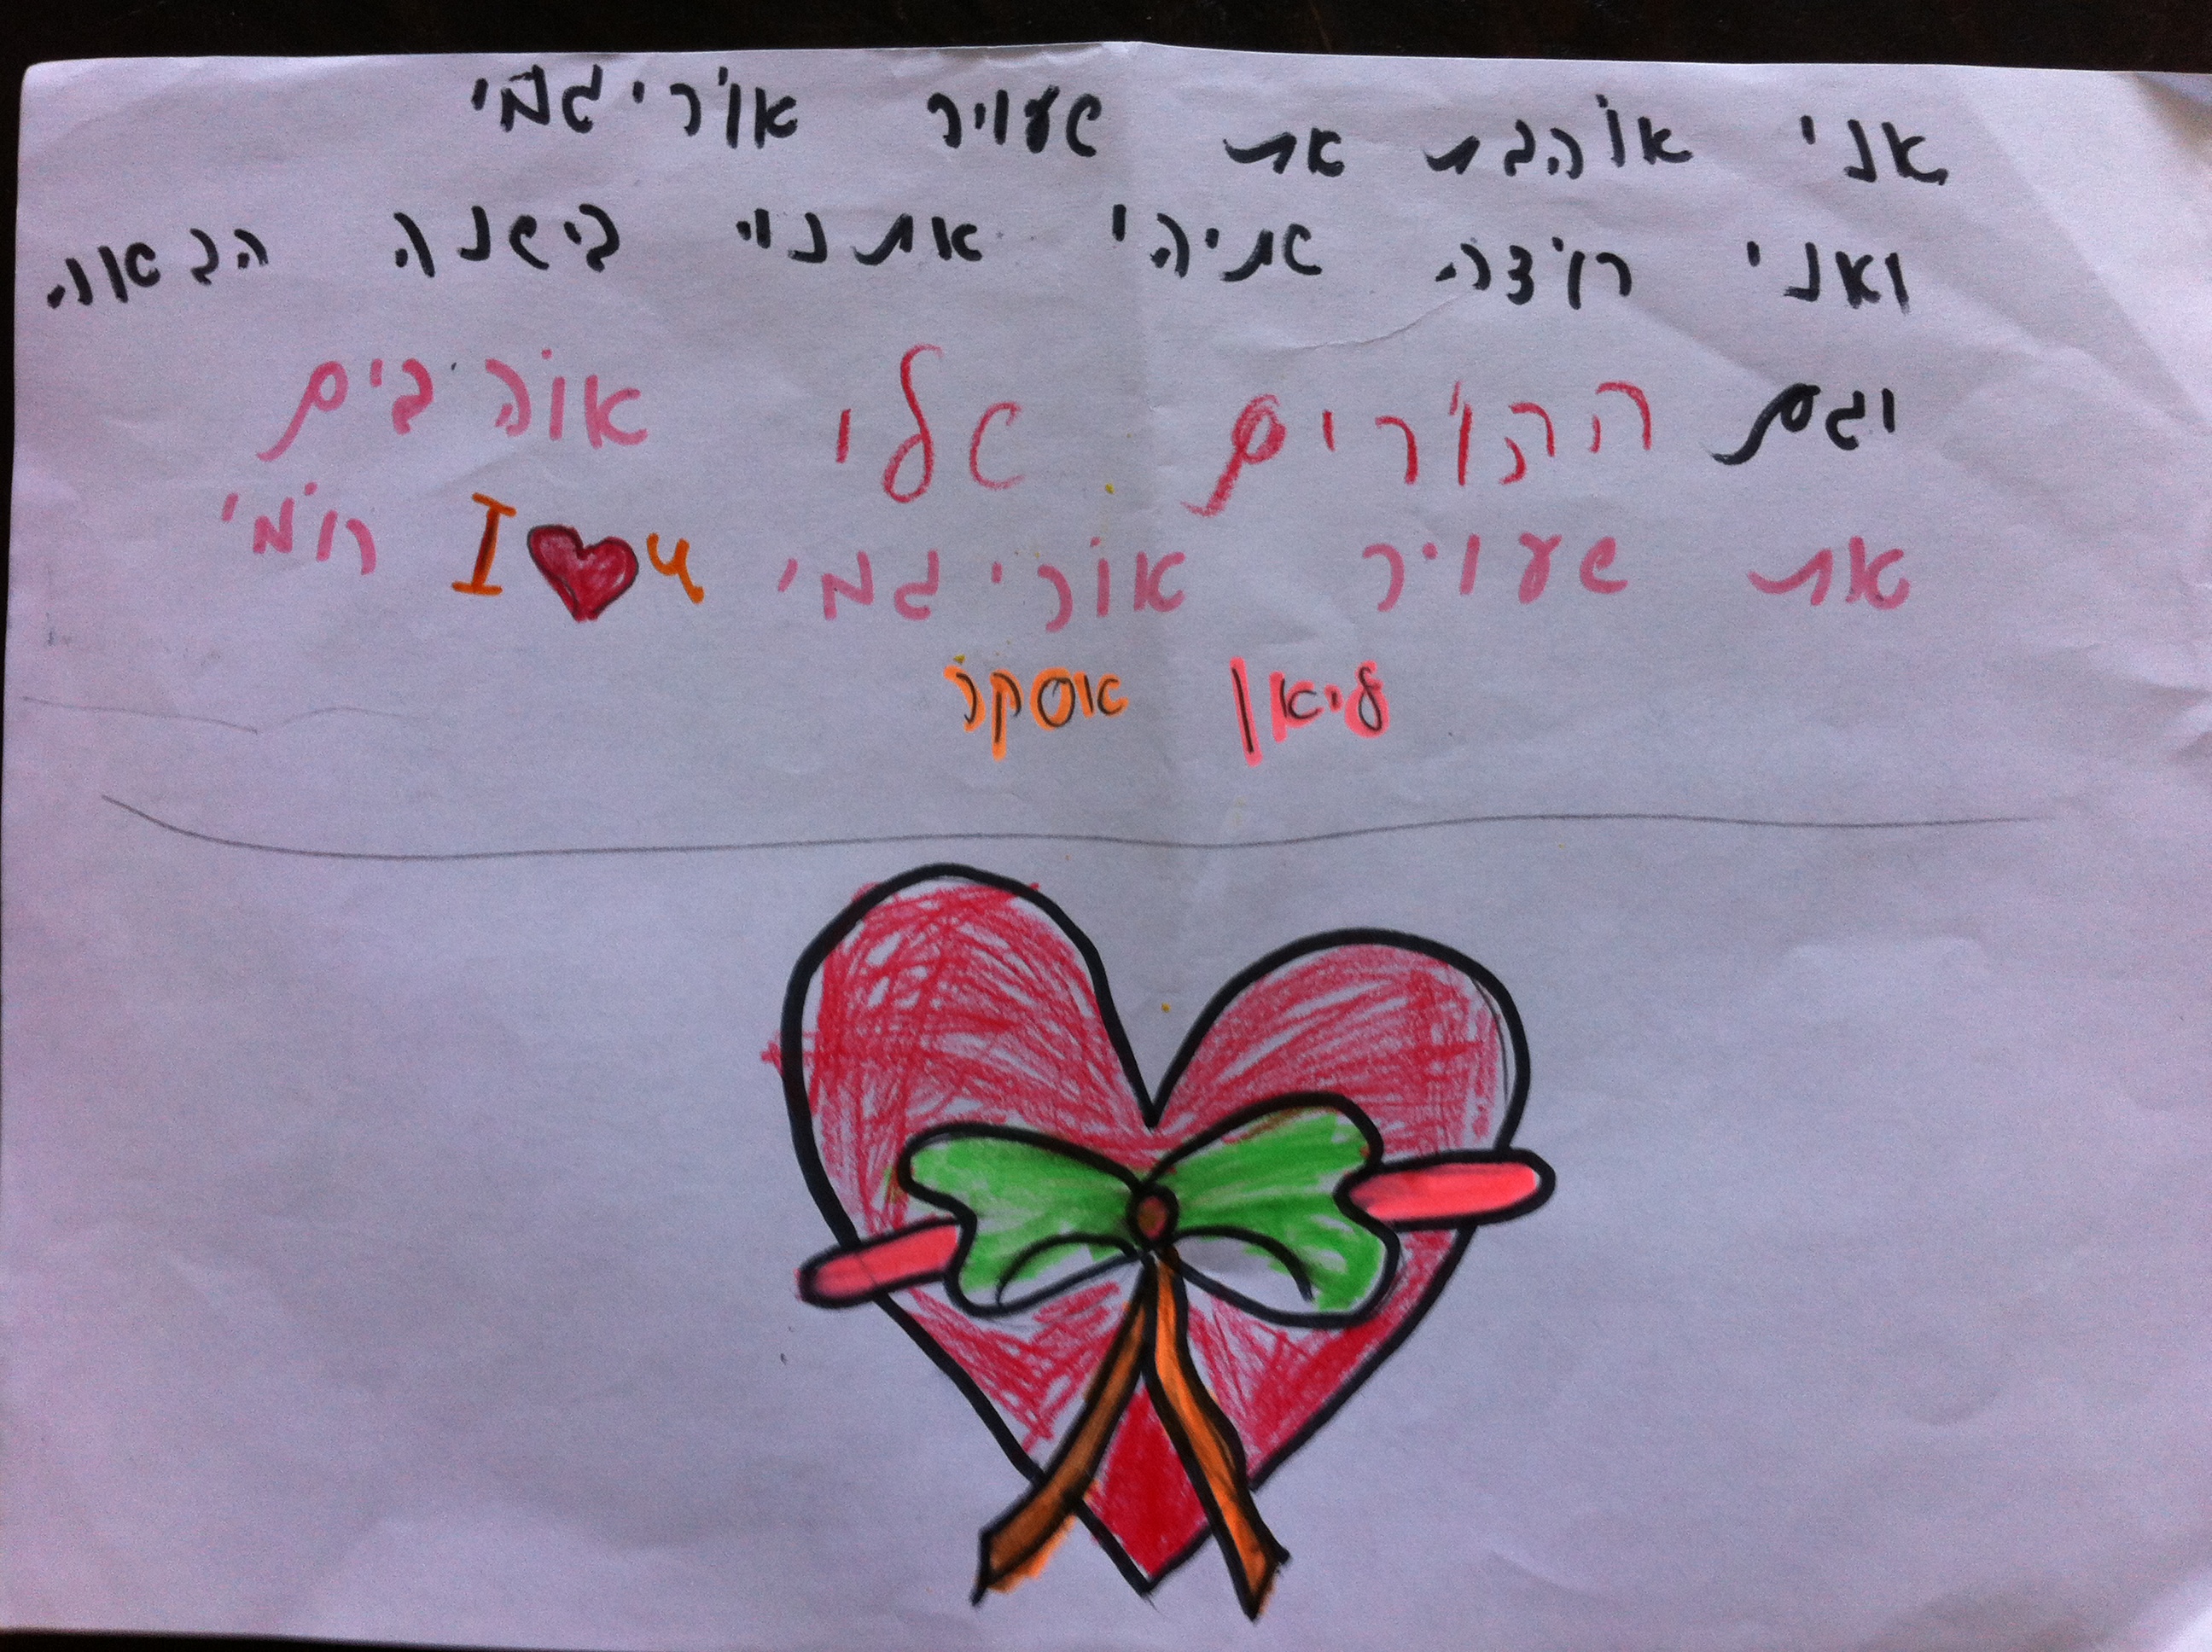 אני אוהבת את שעויר אוריגמי
ואני רוצה שתיהי אתניי בישנה הבאה
וגם ההורים שלי אוהבים
את שעויר אוריגמי I ❤ u רומי
ליאן אוסקר